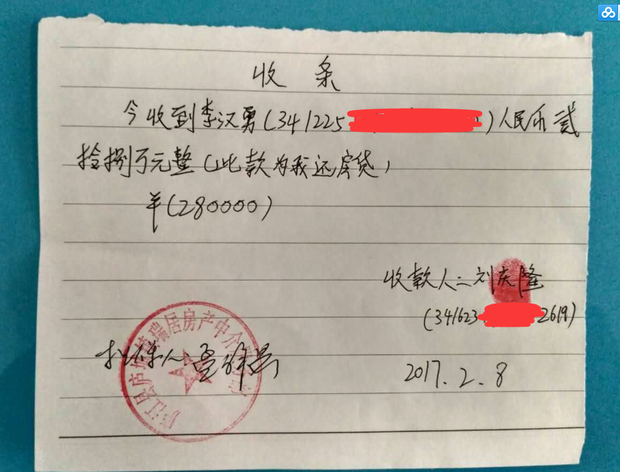 收条
今收到李汉勇(341225          )人民币贰
拾捌万元整(此款为我还房贷)
￥(280000)
收款人:刘庆隆
(341623      2619)
担保人
2017.2.8
庐江县庐城 瑞居房产中介